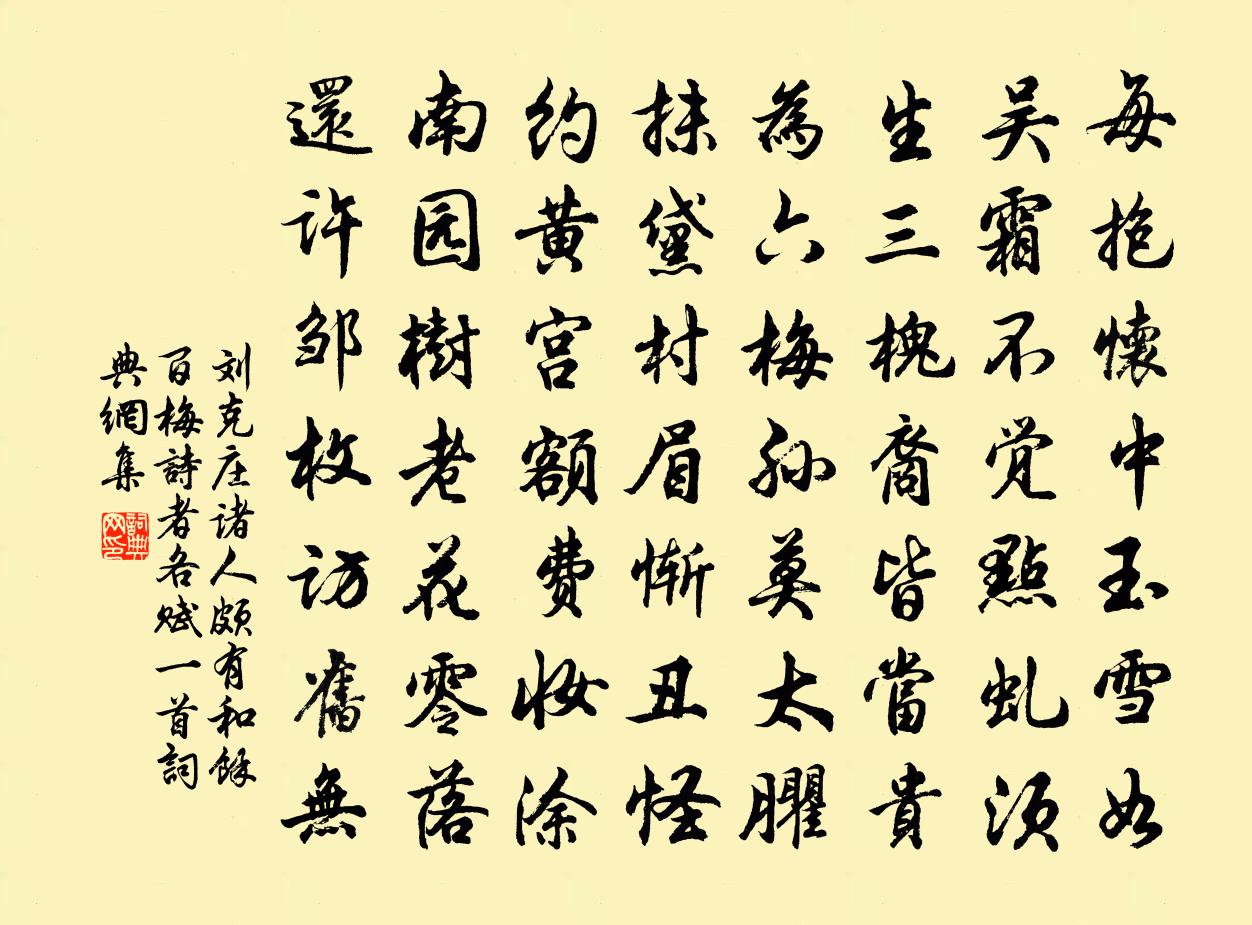 每抱懷中玉雪如
吴霜不觉點虬须
生三槐裔皆當貴
為六梅孙莫太臞
抹黛村眉惭丑怪
约黄宫额费妆涂
南园樹老花零落
還许邹枚访舊無
刘克庄诸人颇有和餘
百梅詩者各赋一首詞
典網集
詞典网印